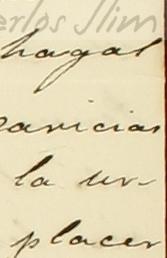 erlos Slim
hagal
caricias
la ur-
placer